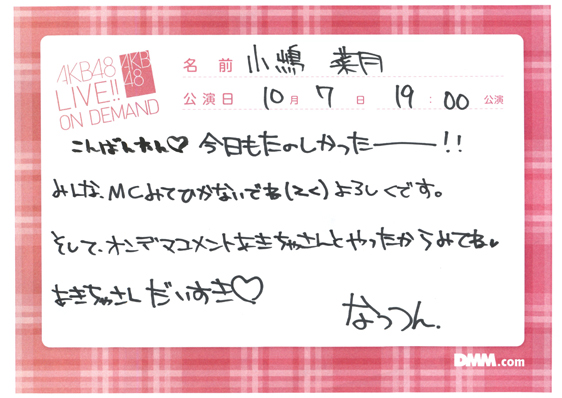 AKB48
LIVE!!
ON DEMAND
AKB
48
名前 小嶋 菜月
公演日 10月 7日 19:00 公演
こんばんわん♡ 今日もたのしかったーーー!!
みんな、MCみてひかないでね(とく)よろしくです。
そして、オンデマコメントはきちゃさんとやったからみてね♥
はきちゃさん だいすき♡
なっつん.
DMM.com